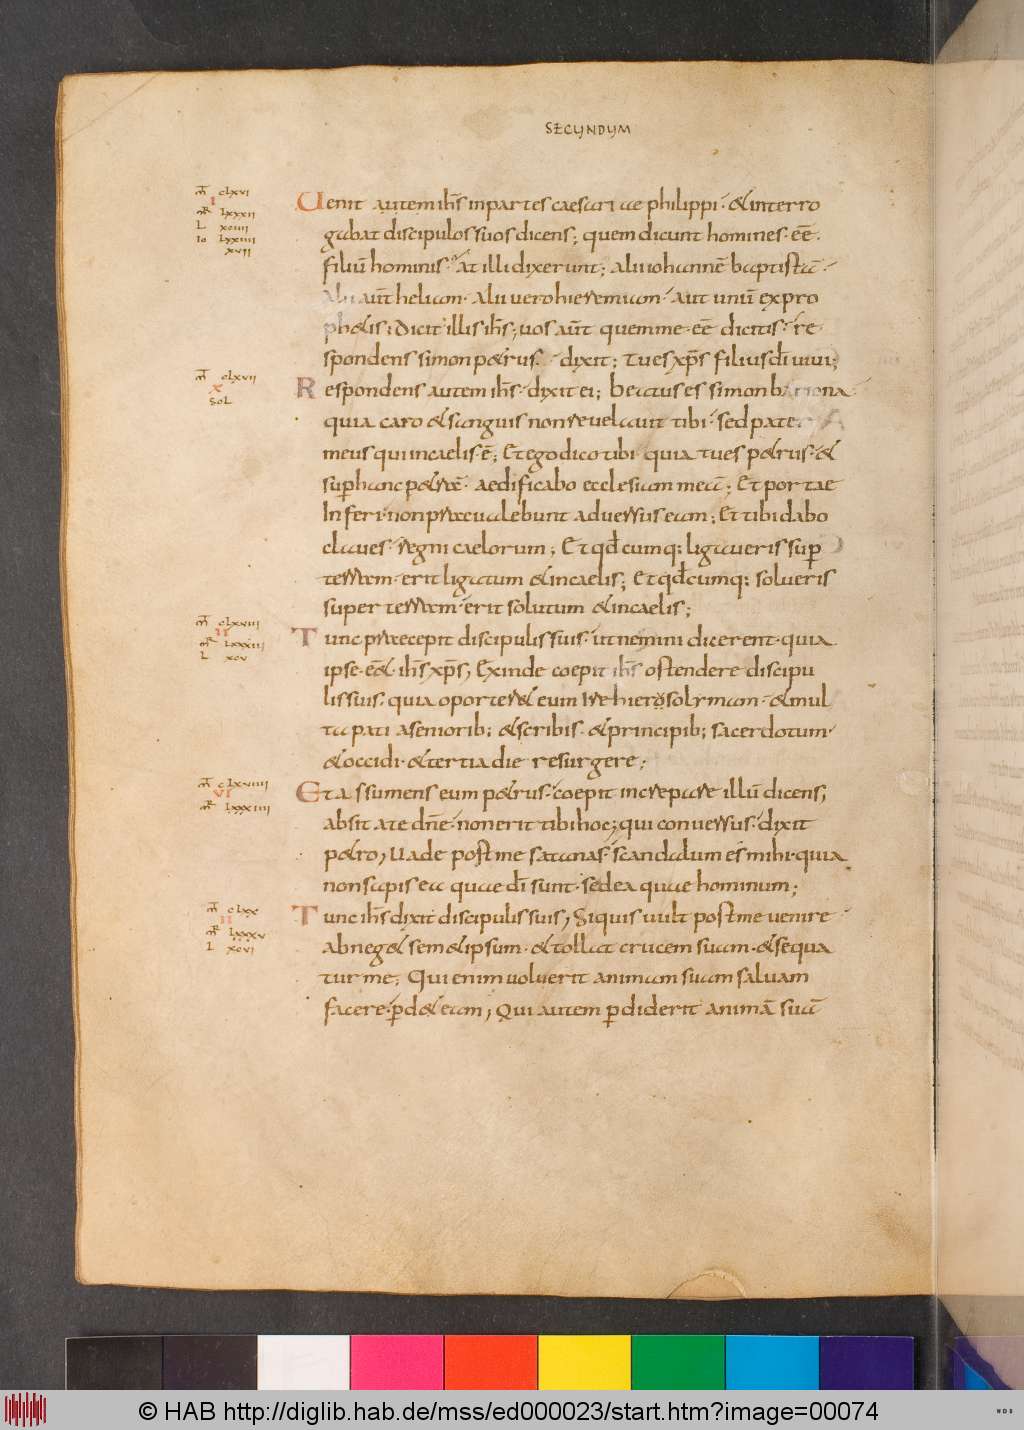 SECUNDUM
m̄ clxvi
I
mr̄ lxxxii
L xciiii
Io lxxiiii
xvii
Uenit autem ihs̄ inpartes caesariae philippi· &interro
gabat discipulos suos dicens; quem dicunt homines· eē·
filiū hominis· at illi dixerunt; alii iohannē baptistā·
alii aūt heliam· alii vero hieremiam· aut unū expro
ph&is; dicit illis ihs̄; uos aūt quem me· eē dicitis· re
spondens simon p&rus· dixit; tu es xp̄s filius dī uiui;
m̄ clxvii
x
Sol
Respondens autem ihs̄· dixit ei; beatus es simon bariona·
quia caro &sanguis non reuelauit tibi· sed pater
meus qui incaelis· ē; Et ego dico tibi· quia tu es p&rus· &
sup hanc p&rā· aedificabo ecclesiam meā; Et portae
Inferi· non praeualebunt aduersus eam; Et tibi dabo
claues· regni caelorum; Et qd̄cumq; ligaueris sup
terram· erit ligatum &incaelis; Et qd̄cumq; solueris
super terram· erit solutum &incaelis;
m̄ clxviii
II
mr̄ lxxxiii
L xcv
Tunc praecepit discipulis suis· ut nemini dicerent· quia
ipse· ēē&· ihs̄ xp̄s; Exinde coepit ihs̄ ostendere discipu
lis suis· quia oporter& eum ire hierosolymam· &mul
ta pati a seniorib; &scribis· &principib; sacerdotum·
&occidi· &tertia die resurgere;
m̄ clxviiii
VI
mr̄ lxxxiiii
Et assumens eum p&rus· coepit increpare illū dicens;
absit a te dn̄e· non erit tibi hoc; qui conuersus· dixit
p&ro; Uade post me satanas· scandalum es mihi· quia
non sapis ea quae dī sunt· sed ea quae hominum;
m̄ clxx
II
mr̄ lxxxv
L xcvi
Tunc ihs̄ dixit discipulis suis; Siquis uult post me uenire·
abneg& sem&ipsum· &tollat crucem suam· &sequa
tur me; Qui enim uoluerit animam suam saluam
facere· pd& eam; Qui autem pdiderit animā suā
© HAB http://diglib.hab.de/mss/ed000023/start.htm?image=00074